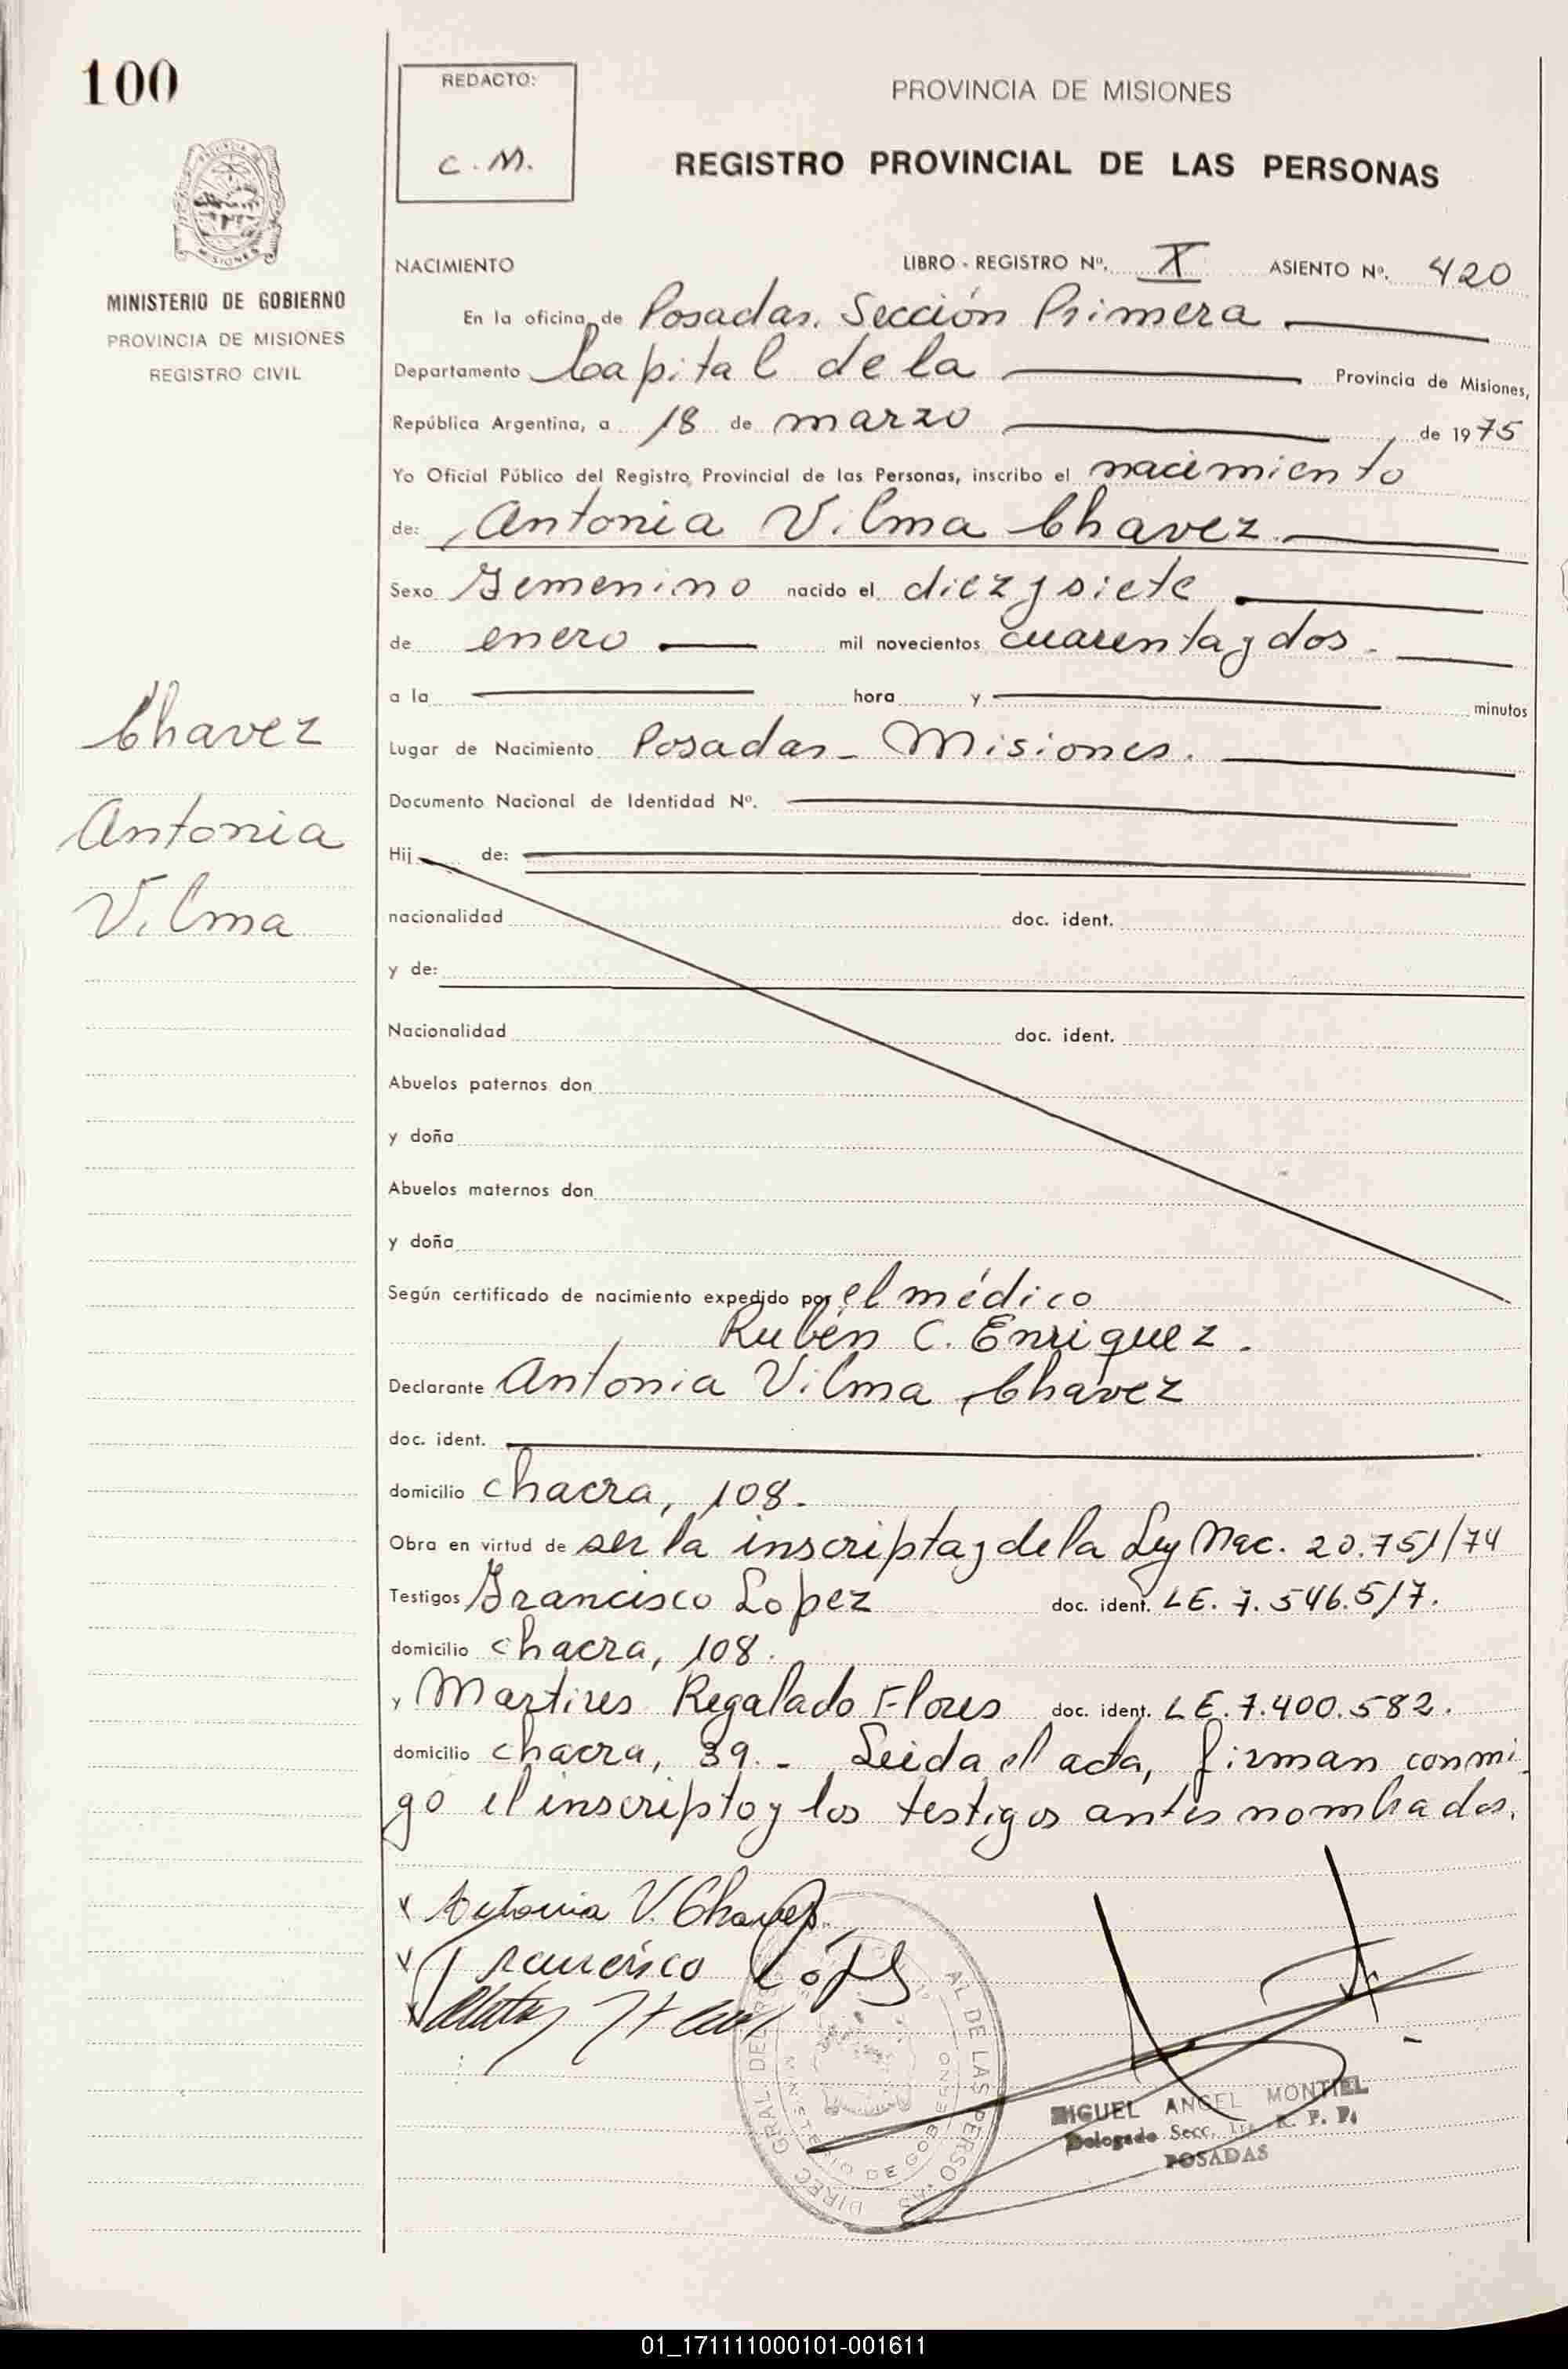 100
REDACTO:
C. M.
PROVINCIA DE MISIONES
REGISTRO PROVINCIAL DE LAS PERSONAS
MISIONES
MINISTERIO DE GOBIERNO
PROVINCIA DE MISIONES
REGISTRO CIVIL
NACIMIENTO LIBRO - REGISTRO Nº. X ASIENTO Nº. 420
En la oficina de Posadas. Sección Primera
Departamento Capital de la Provincia de Misiones,
República Argentina, a 18 de marzo de 1975
Yo Oficial Público del Registro Provincial de las Personas, inscribo el nacimiento
de: Antonia Vilma Chavez
Sexo Femenino nacido el diez y siete
de enero mil novecientos cuarenta y dos.
a la hora y minutos
Chavez
Antonia
Vilma
Lugar de Nacimiento Posadas - Misiones.
Documento Nacional de Identidad Nº.
Hij de:
nacionalidad doc. ident.
y de:
Nacionalidad doc. ident.
Abuelos paternos don
y doña
Abuelos maternos don
y doña
Según certificado de nacimiento expedido por el médico
Rubén C. Enriquez.
Declarante Antonia Vilma Chavez
doc. ident.
domicilio chacra, 108.
Obra en virtud de ser la inscripta y de la Ley Nac. 20.751/74
Testigos Francisco Lopez doc. ident. LE. 7.546.517.
domicilio chacra, 108.
y Martires Regalado Flores doc. ident. LE. 7.400.582.
domicilio chacra, 39. - Leida el acta, firman conmi
go el inscripto y los testigos antes nombrados.
x Antonia V. Chavez
x Francisco López
DIREC. GRAL. DEL AL DE LAS PERSONAS
MINISTERIO DE GOBIERNO
MIGUEL ANGEL MONTIEL
Delegado Secc. 1ra. R. P. P.
POSADAS
01_171111000101-001611